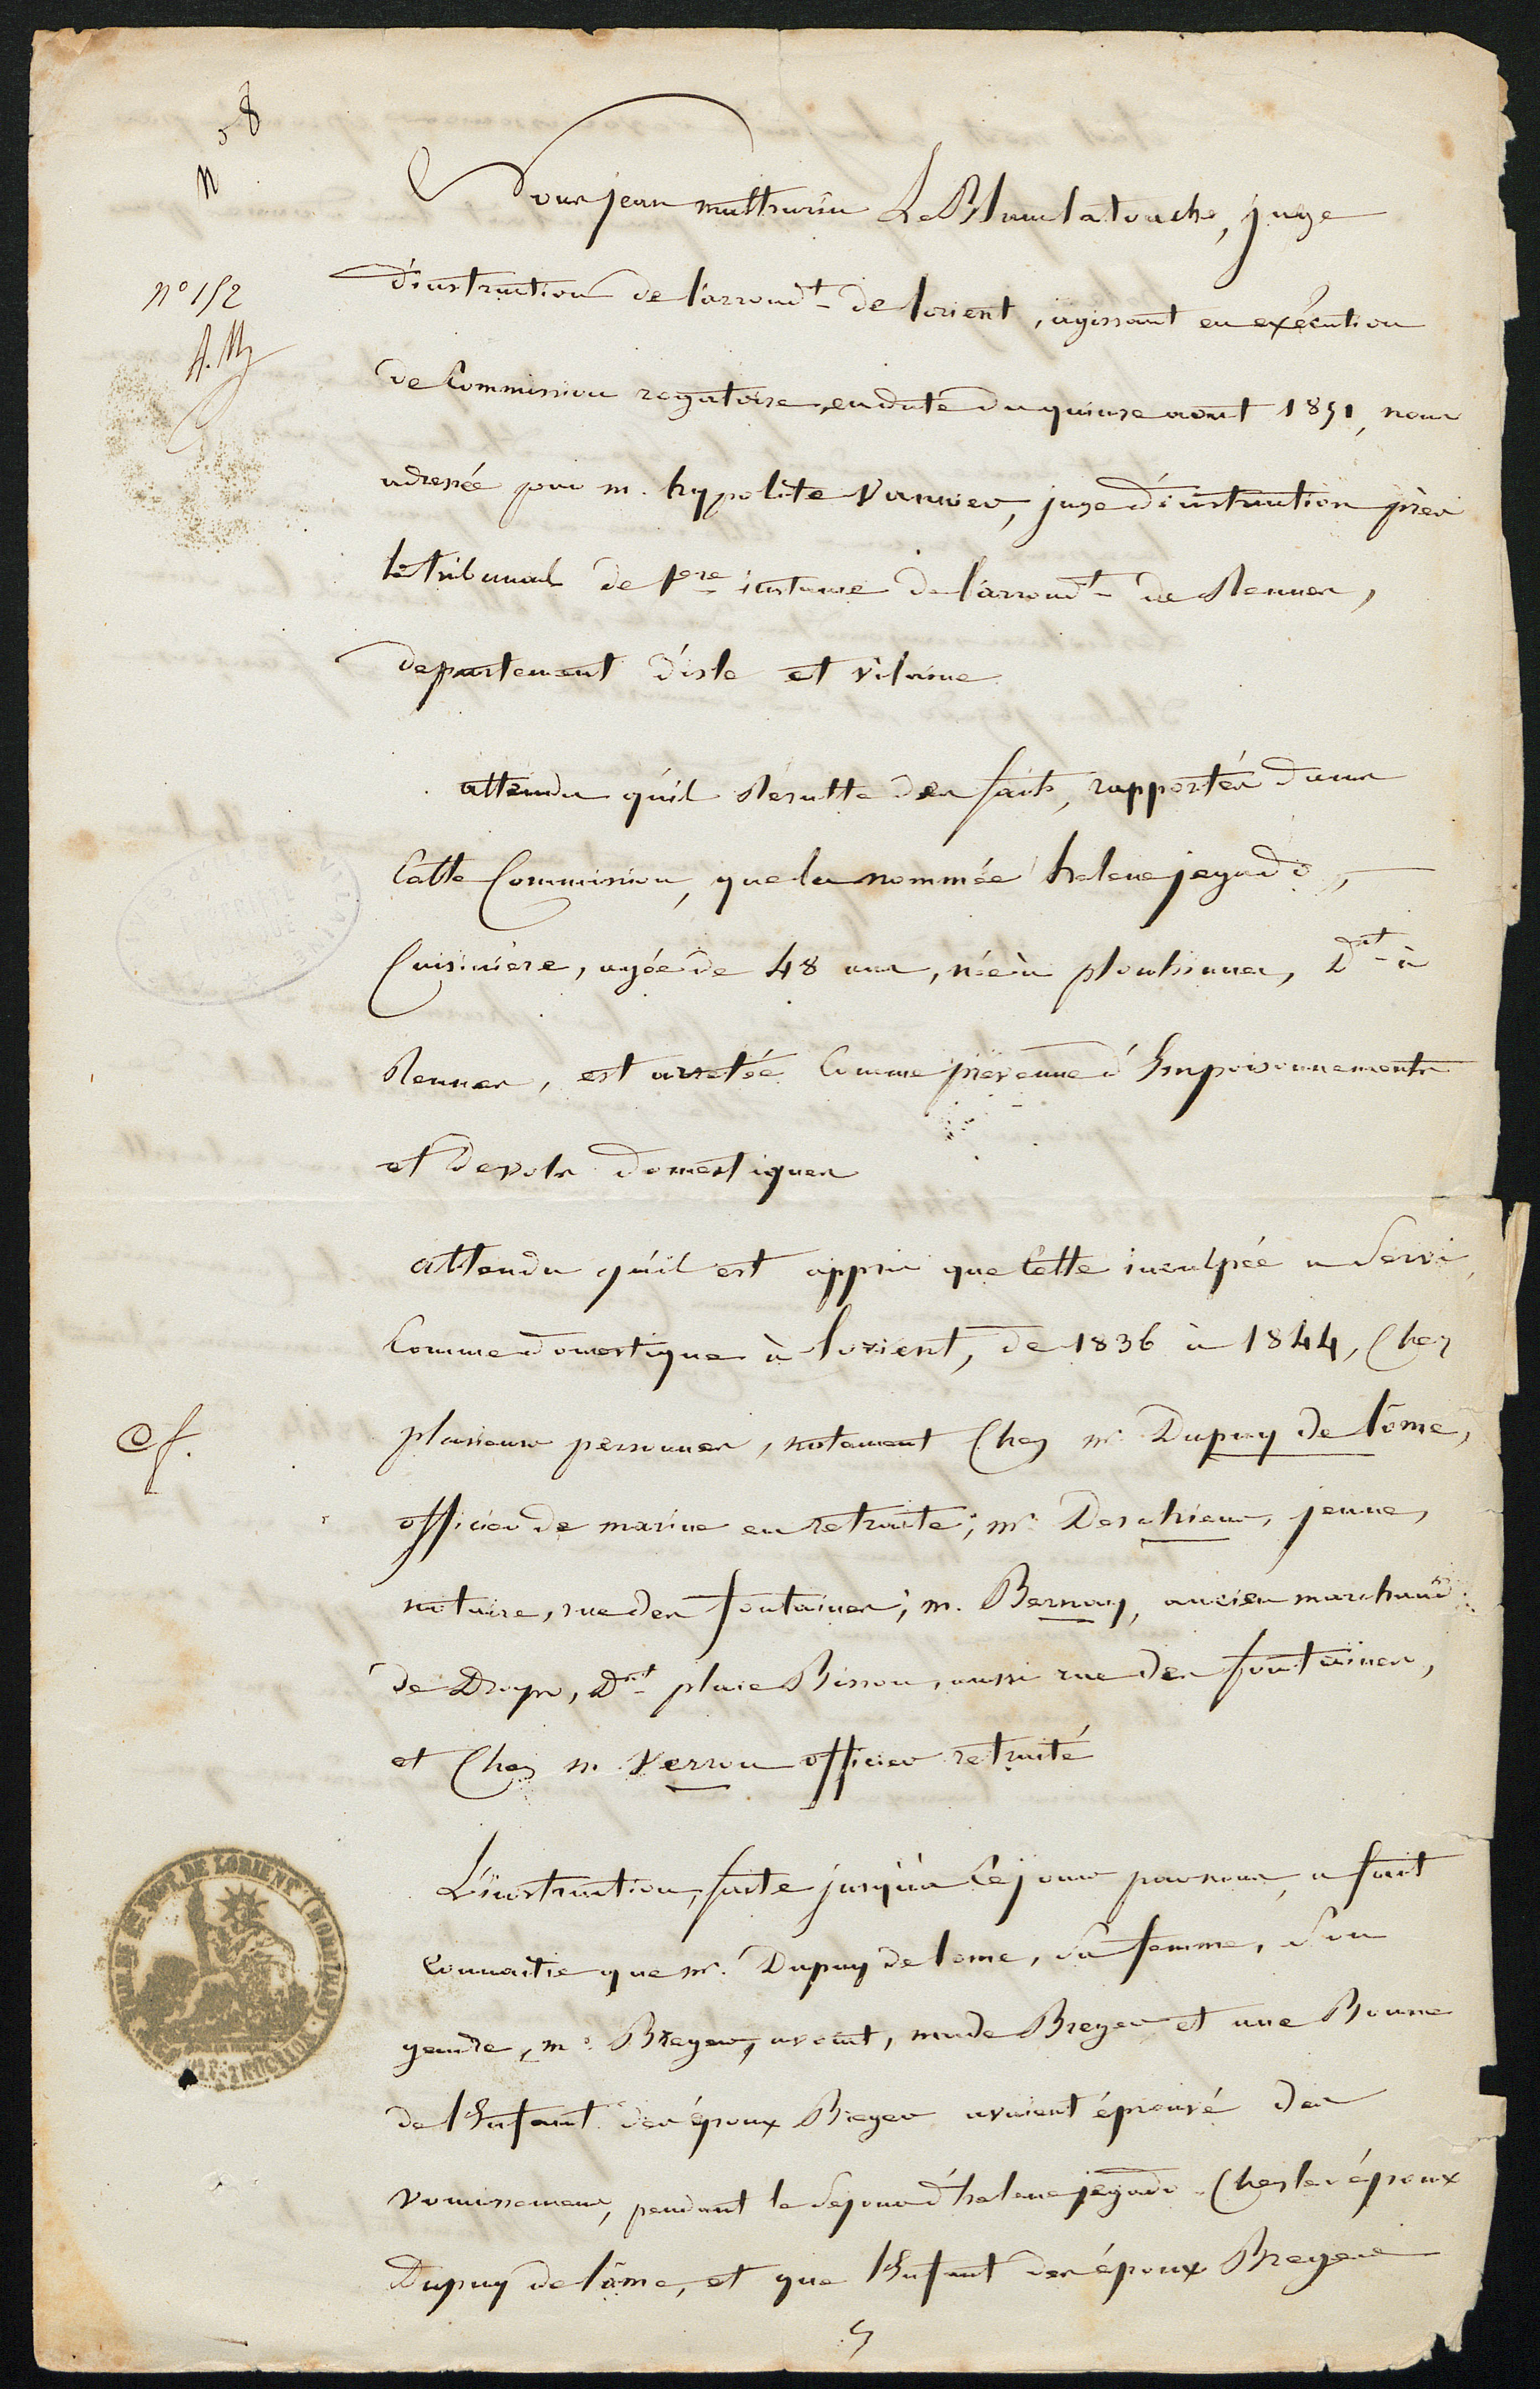 n° 8
n° 152
Nous jean mathurin Le Blanc latouche, juge
d'instruction de l'arrondt de lorient, agissant en exécution
de Commission rogatoire, en date du quinze aout 1851, nous
adressée par m. hypolite vannier, juge d'instruction près
le tribunal de 1ere instance de l'arrondt de Rennes,
departement d'isle et vilaine
attendu qu'il Résulte des faits, rapportés dans
Cette Commission, que la nommée helene jegado,
Cuisinière, agée de 48 ans, née à plouhinnec, Dt à
Rennes, est arretée Comme prévenue d'Empoisonnements
et de vols domestiques
attendu qu'il est appris que Cette inculpée a Servi,
Comme domestique à lorient, de 1836 à 1844, Chez
plusieurs personnes, notament Chez mr Dupuy de lôme,
officier de marine en retraite; mr Deschiens, jeune,
notaire, rue des fontaines; m. Bernay, ancien marchand
de Draps, Dt place Bisson, aussi rue des fontaines,
et Chez m. Verron officier retraité
L'instruction, faite jusqu'à Ce jour par nous, a fait
Connaitre que mr. Dupuy de lome, Sa femme, Son
gendre, mr. Breger, avant, made Breger et une Bonne
de l'Enfant des époux Breger avaient éprouvé des
vomissemens, pendant le Sejour d'helene jegado Chez les époux
Dupuy de lôme, et que l'Enfant des époux Breger
DE LORIENT (MORBIHAN)
INSTRUCTION